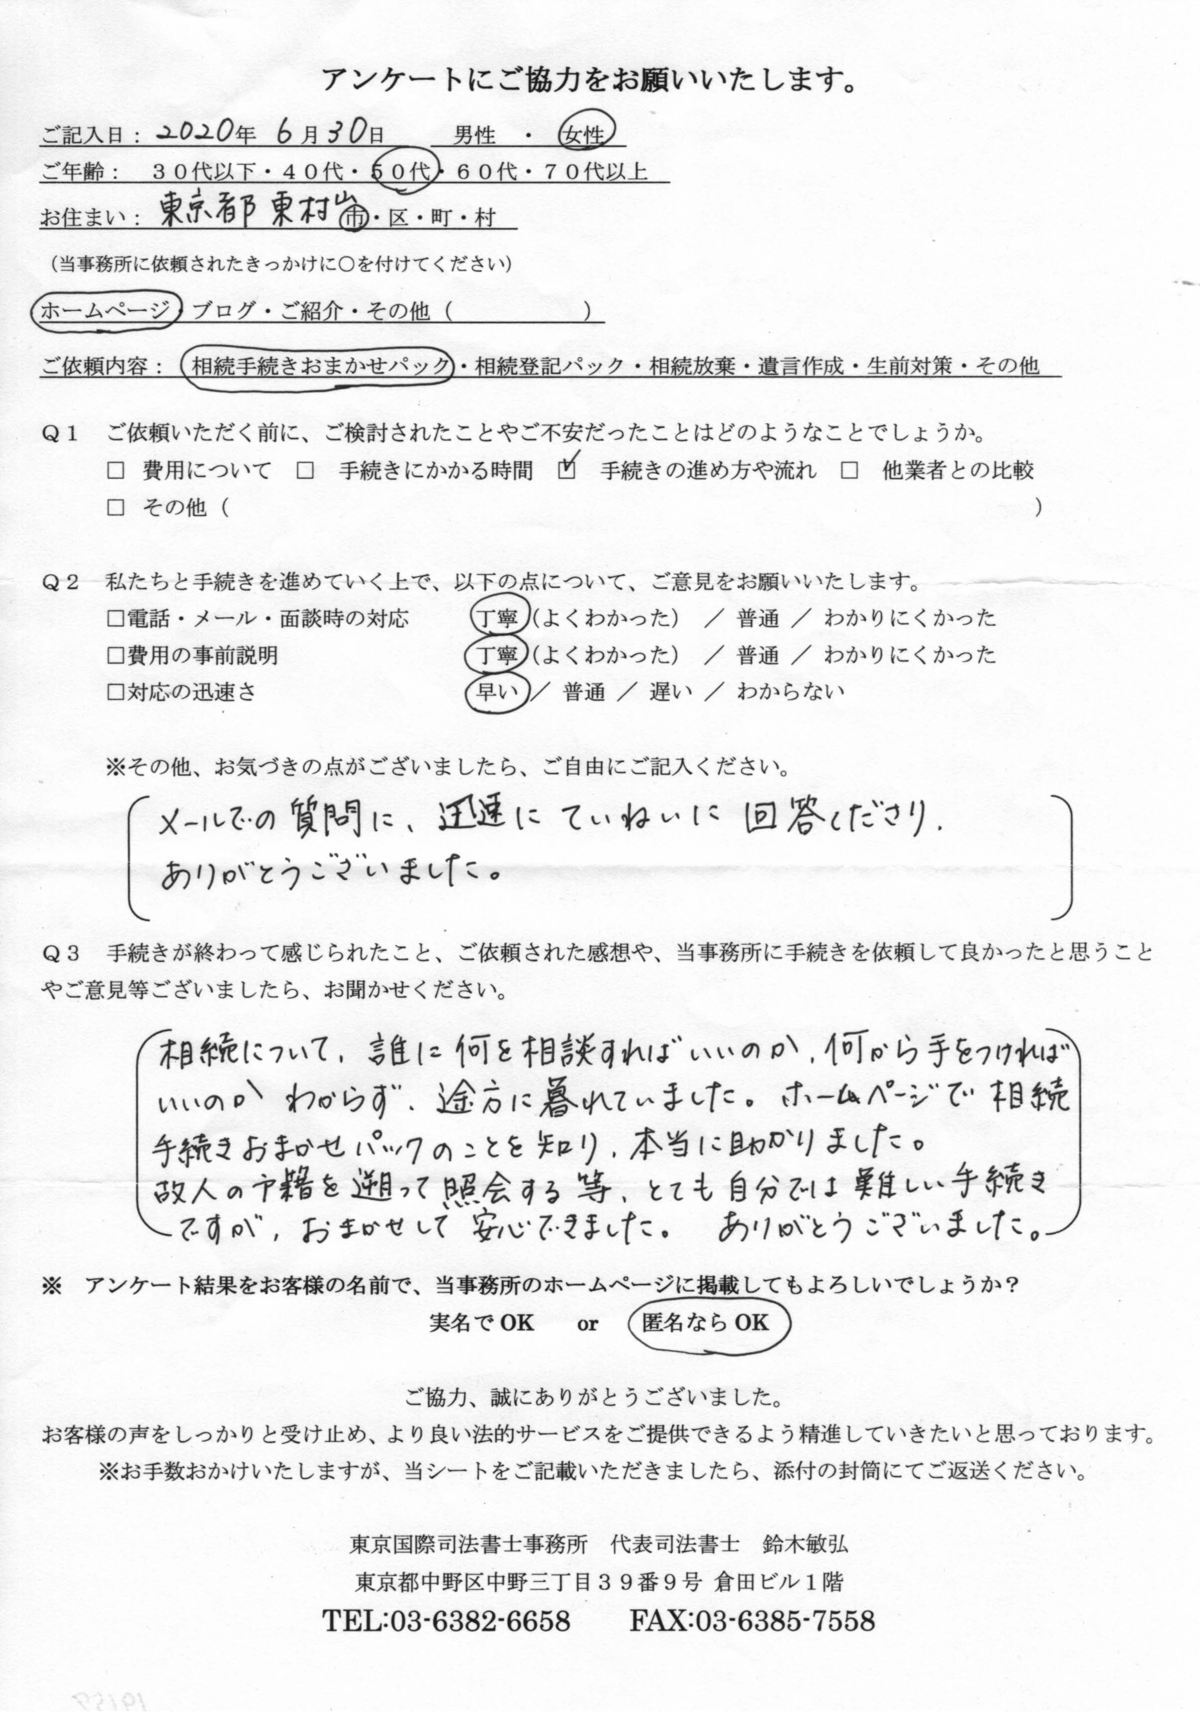 アンケートにご協力をお願いいたします。
ご記入日： 2020年 6月30日　男性 ・ 女性
ご年齢： ３０代以下・４０代・５０代・６０代・７０代以上
お住まい： 東京都 東村山市・区・町・村
（当事務所に依頼されたきっかけに○を付けてください）
ホームページ・ブログ・ご紹介・その他（　　　　　　）
ご依頼内容： 相続手続きおまかせパック・相続登記パック・相続放棄・遺言作成・生前対策・その他
Ｑ１　ご依頼いただく前に、ご検討されたことやご不安だったことはどのようなことでしょうか。
□ 費用について □ 手続きにかかる時間 ☑ 手続きの進め方や流れ □ 他業者との比較
□ その他（　　　　　　）
Ｑ２　私たちと手続きを進めていく上で、以下の点について、ご意見をお願いいたします。
□電話・メール・面談時の対応　丁寧（よくわかった） ／ 普通 ／ わかりにくかった
□費用の事前説明　丁寧（よくわかった） ／ 普通 ／ わかりにくかった
□対応の迅速さ　早い ／ 普通 ／ 遅い ／ わからない
※その他、お気づきの点がございましたら、ご自由にご記入ください。
メールでの質問に、迅速にていねいに回答くださり、
ありがとうございました。
Ｑ３　手続きが終わって感じられたこと、ご依頼された感想や、当事務所に手続きを依頼して良かったと思うこと
やご意見等ございましたら、お聞かせください。
相続について、誰に何を相談すればいいのか、何から手をつければ
いいのか わからず、途方に暮れていました。ホームページで相続
手続きおまかせパックのことを知り、本当に助かりました。
故人の戸籍を遡って照会する等、とても自分では難しい手続き
ですが、おまかせして安心できました。ありがとうございました。
※　アンケート結果をお客様の名前で、当事務所のホームページに掲載してもよろしいでしょうか？
実名でOK　or　匿名ならOK
ご協力、誠にありがとうございました。
お客様の声をしっかりと受け止め、より良い法的サービスをご提供できるよう精進していきたいと思っております。
※お手数おかけいたしますが、当シートをご記載いただきましたら、添付の封筒にてご返送ください。
東京国際司法書士事務所　代表司法書士　鈴木敏弘
東京都中野区中野三丁目３９番９号 倉田ビル１階
TEL:03-6382-6658　FAX:03-6385-7558